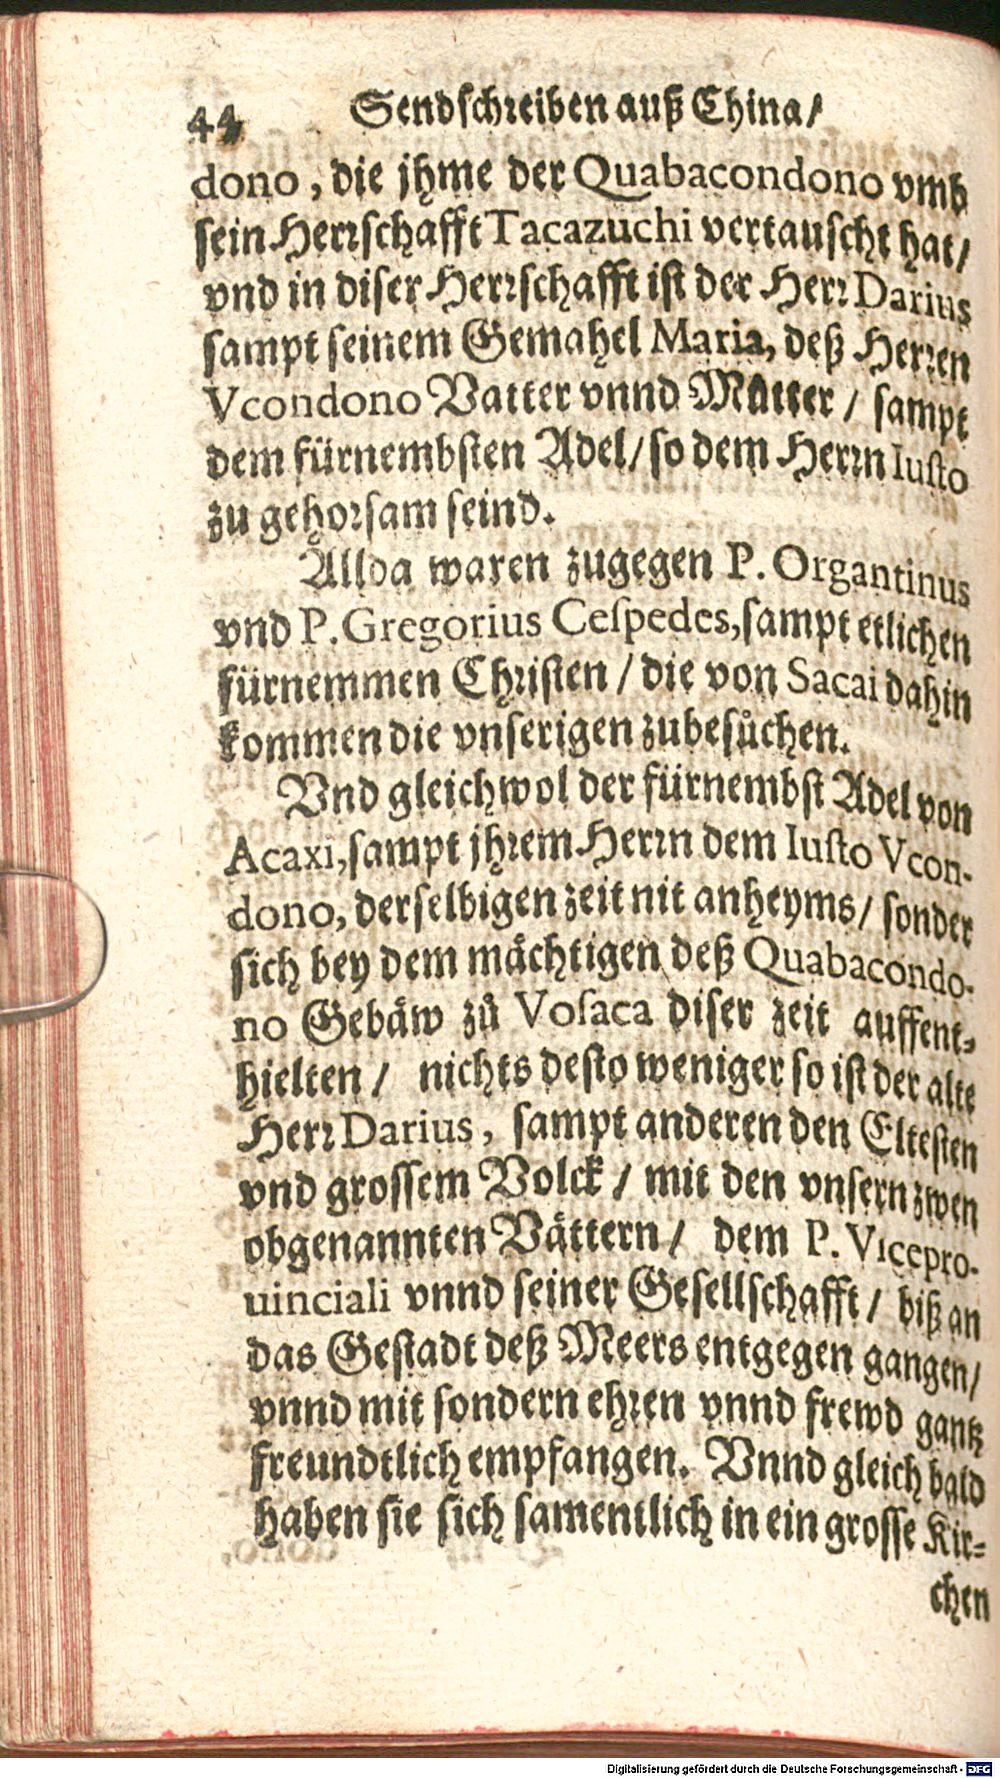 44 Sendschreiben auß China/
dono, die jhme der Quabacondono vmb
sein Herrschafft Tacazuchi vertauscht hat/
vnd in diser Herrschafft ist der Herr Darius
sampt seinem Gemahel Maria, deß Herren
Vcondono Vatter vnnd Mutter / sampt
dem fürnembsten Adel/ so dem Herrn Iusto
zu gehorsam seind.
Allda waren zugegen P. Organtinus
vnd P. Gregorius Cespedes, sampt etlichen
fürnemmen Christen / die von Sacai dahin
kommen die vnserigen zubesůchen.
Vnd gleichwol der fürnembst Adel von
Acaxi, sampt jhrem Herrn dem Iusto Vcon-
dono, derselbigen zeit nit anheyms/ sonder
sich bey dem mächtigen deß Quabacondo-
no Gebäw zů Vosaca diser zeit auffent-
hielten / nichts desto weniger so ist der alte
Herr Darius, sampt anderen den Eltesten
vnd grossem Volck / mit den vnsern zwen
obgenannten Vättern / dem P. Vicepro-
uinciali vnnd seiner Gesellschafft / biß an
das Gestadt deß Meers entgegen gangen/
vnnd mit sondern ehren vnnd frewd gantz
freundtlich empfangen. Vnnd gleich bald
haben sie sich samentlich in ein grosse Kir-
chen
Digitalisierung gefördert durch die Deutsche Forschungsgemeinschaft - DFG